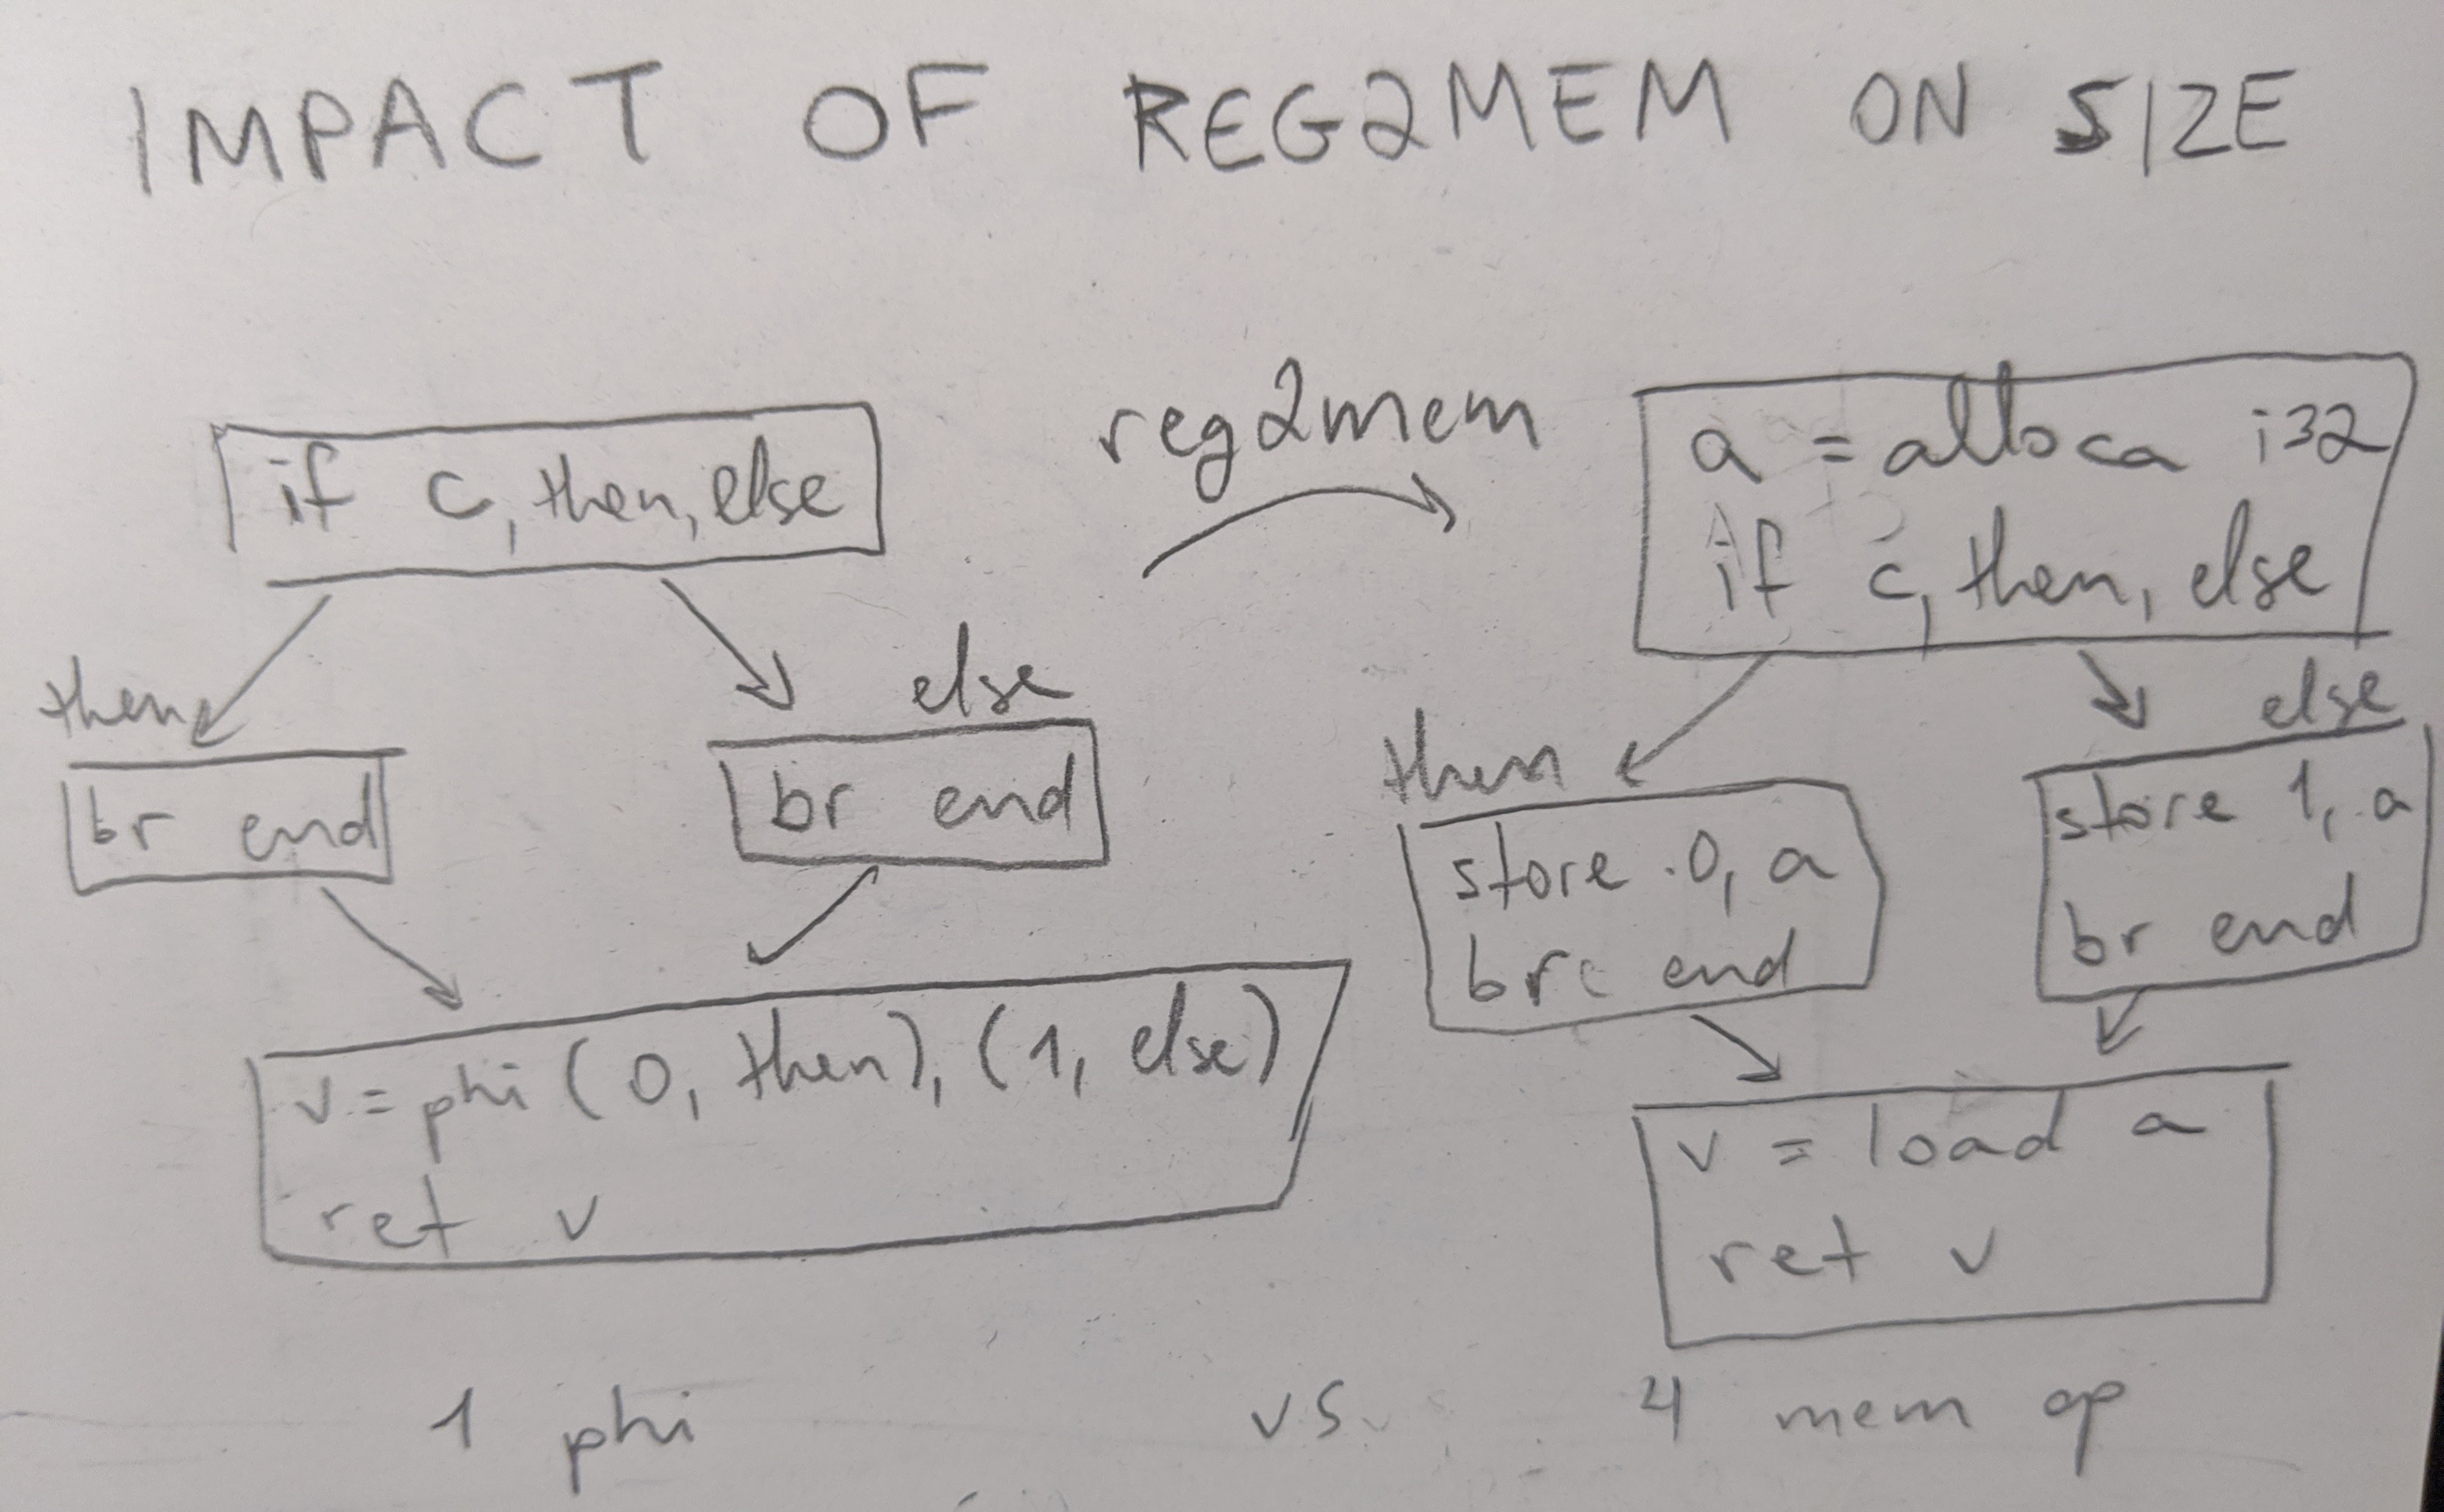 IMPACT OF REG2MEM ON SIZE
if c, then, else
then
br end
else
br end
v = phi (0, then), (1, else)
ret v
reg2mem
a = alloca i32
if c, then, else
then
store 0, a
br end
else
store 1, a
br end
v = load a
ret v
1 phi vs. 4 mem op